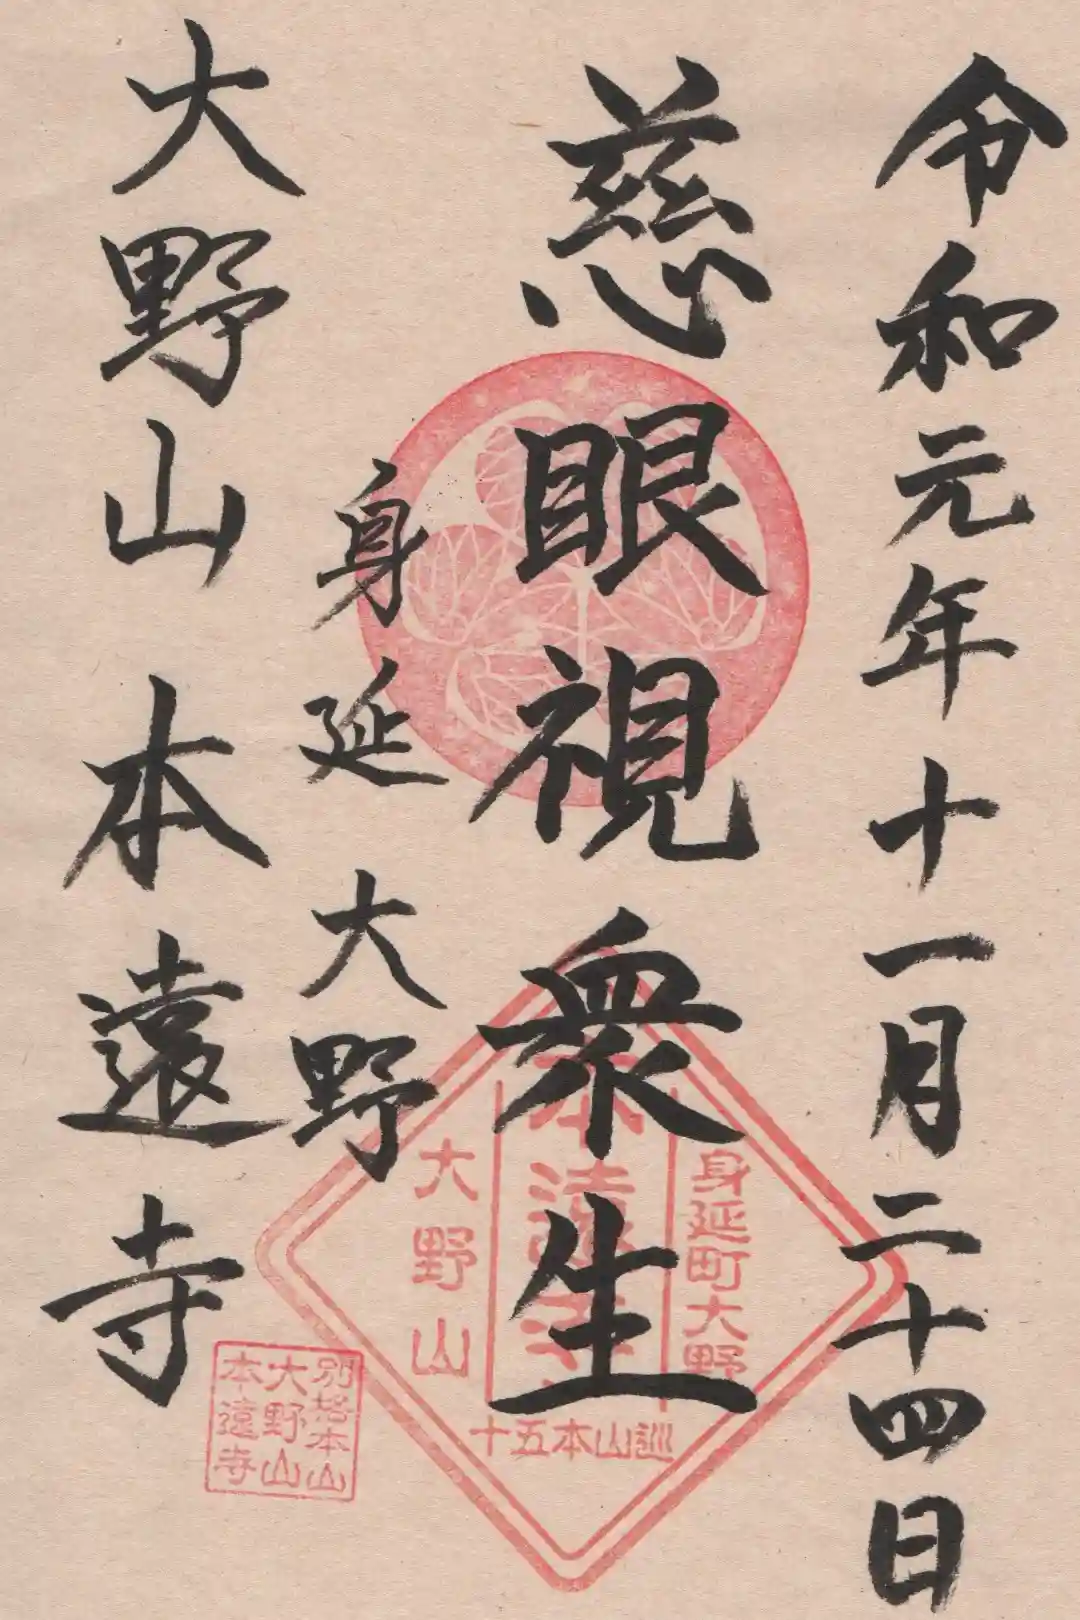 令和元年十一月二十四日
慈眼視衆生
身延
大野
大野山 本遠寺
身延町大野
本遠寺
大野山
巡山本五十
別格本山
大野山
本遠寺